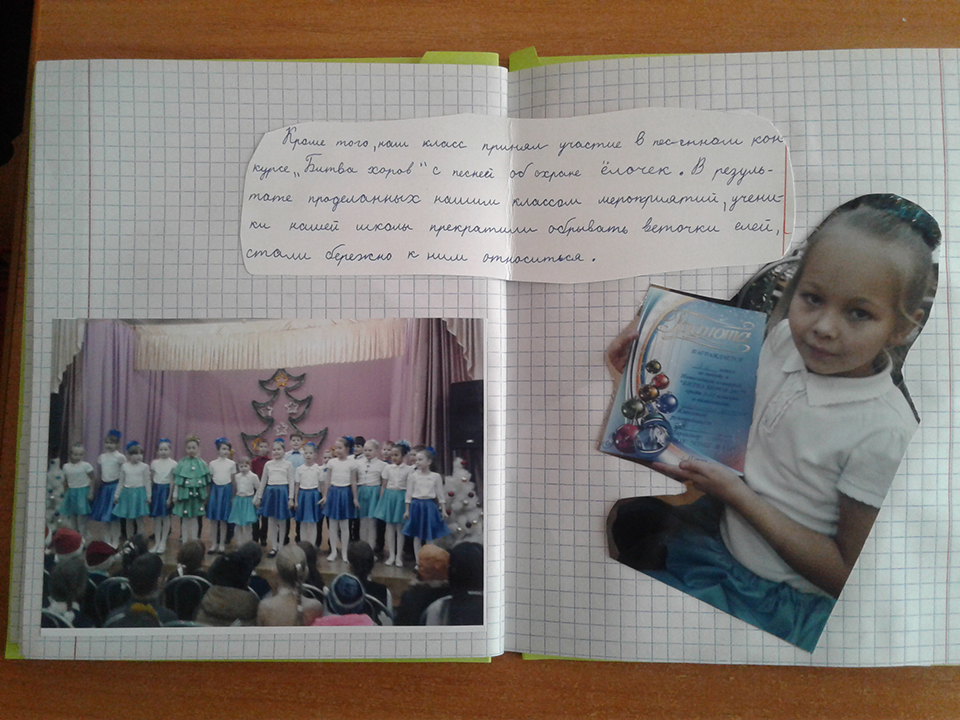 Кроме того, наш класс принял участие в песенном кон-
курсе „Битва хоров" с песней об охране ёлочек. В резуль-
тате проделанных нашим классом мероприятий, учени-
ки нашей школы прекратили обрывать веточки елей,
стали бережно к ним относиться.
Грамота
НАГРАЖДАЕТСЯ